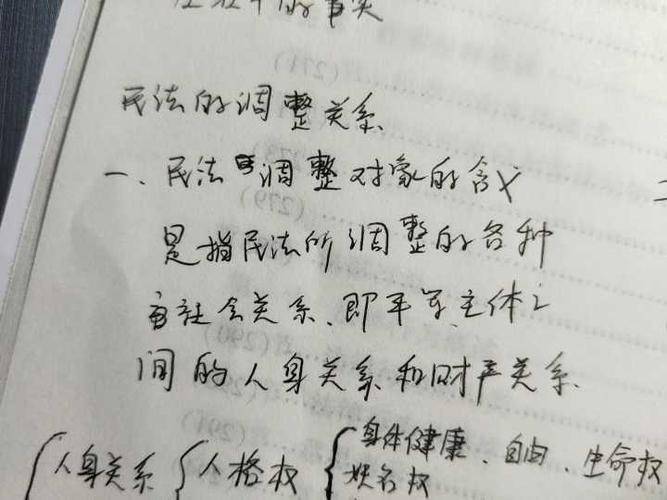 的事实
民法的调整关系
一、民法调整对象的含义
是指民法所调整的各种
社会关系、即平等主体之
间的人身关系和财产关系
人身关系 人格权 身体健康、自由、生命权
姓名权